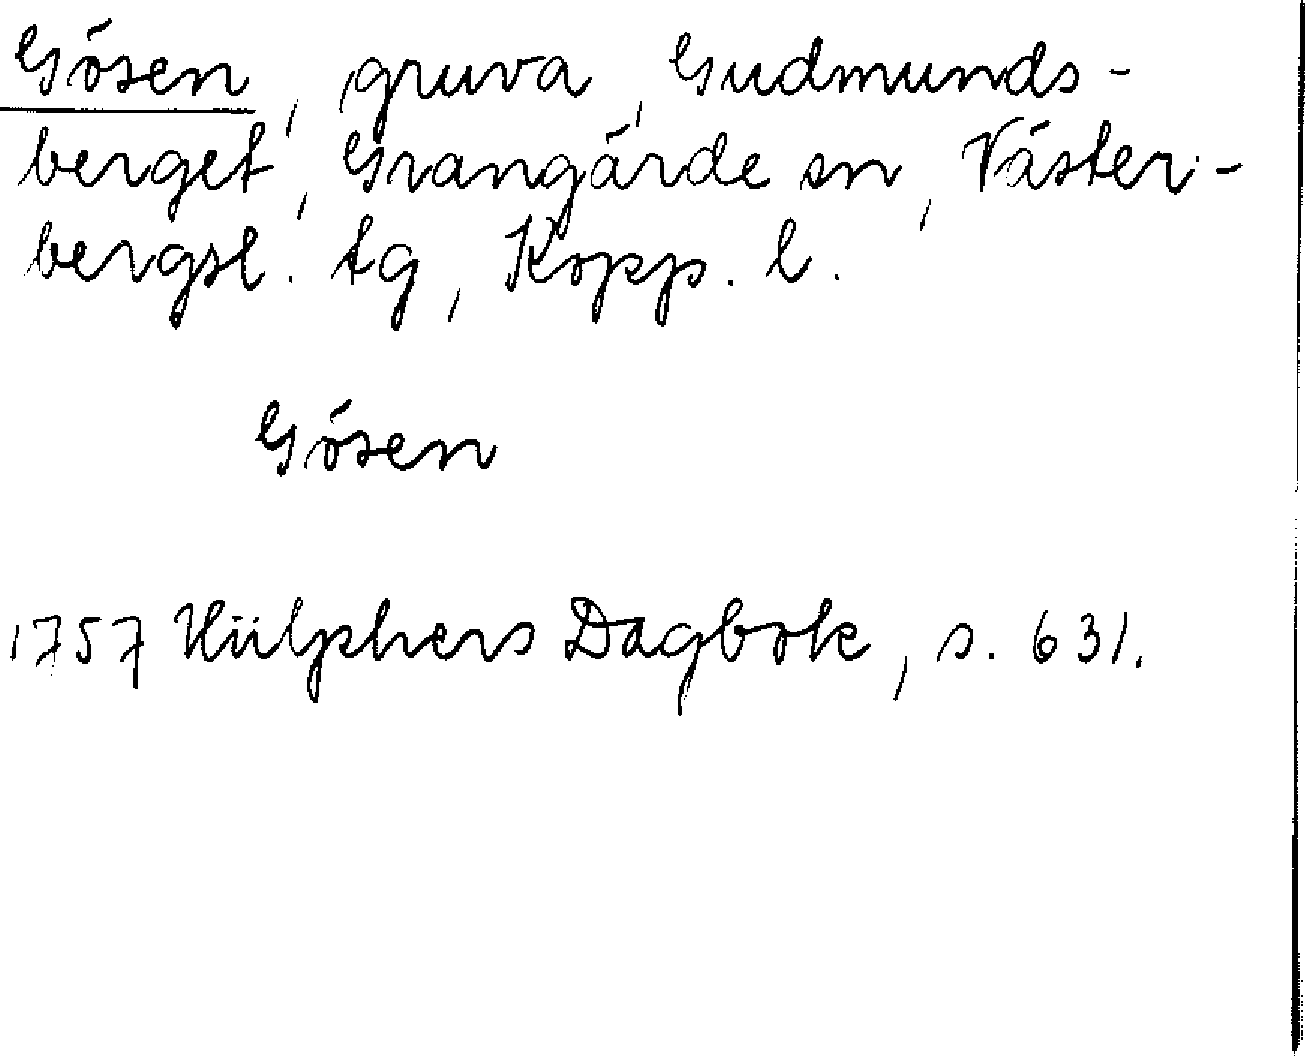 Gösen, gruva, Gudmunds-
berget, Grangärde sn, Väster-
bergsl. tg, Kopp. l.
Gösen
1757 Hülphers Dagbok, s. 631.